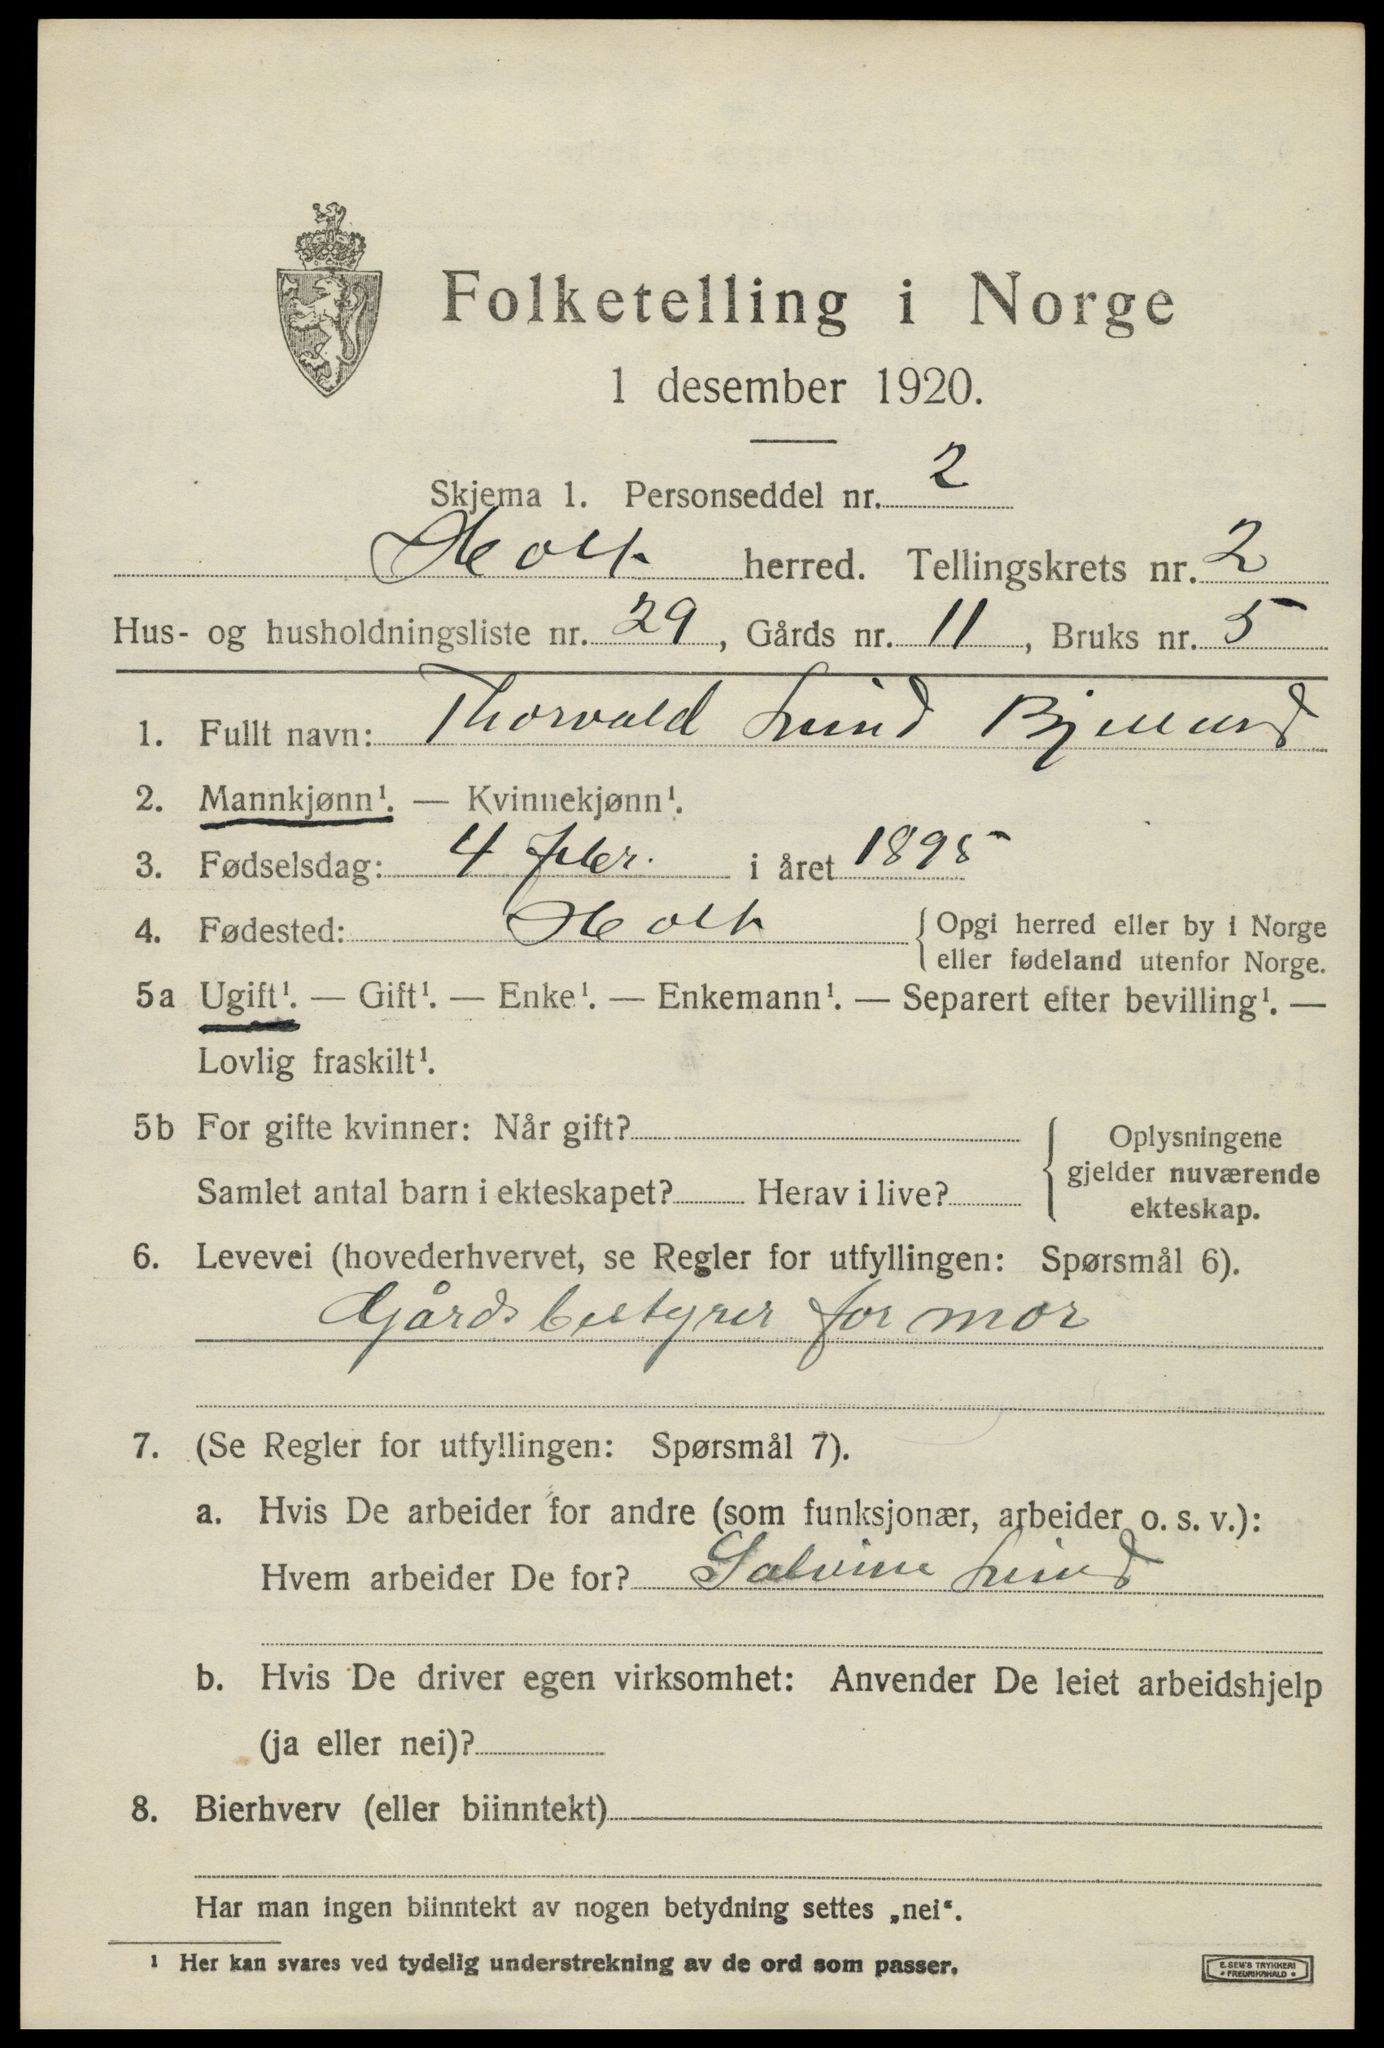 Folketelling i Norge
1 desember 1920.
Skjema 1. Personseddel nr. 2
Holt herred. Tellingskrets nr. 2
Hus- og husholdningsliste nr. 29, Gårds nr. 11, Bruks nr. 5
1. Fullt navn: Thorvald Lund Bjelland
2. Mannkjønn¹. — Kvinnekjønn¹.
3. Fødselsdag: 4 febr. i året 1895
4. Fødested: Holt { Opgi herred eller by i Norge
eller fødeland utenfor Norge.
5a Ugift¹. — Gift¹. — Enke¹. — Enkemann¹. — Separert efter bevilling¹. —
Lovlig fraskilt¹.
5b For gifte kvinner: Når gift?
Samlet antal barn i ekteskapet? Herav i live?
{ Oplysningene
gjelder nuværende
ekteskap.
6. Levevei (hovederhvervet, se Regler for utfyllingen: Spørsmål 6).
Gårdsbestyrer for mor
7. (Se Regler for utfyllingen: Spørsmål 7).
a. Hvis De arbeider for andre (som funksjonær, arbeider o. s. v.):
Hvem arbeider De for? Salvine Lund
b. Hvis De driver egen virksomhet: Anvender De leiet arbeidshjelp
(ja eller nei)?
8. Bierhverv (eller biinntekt)
Har man ingen biinntekt av nogen betydning settes „nei“.
¹ Her kan svares ved tydelig understrekning av de ord som passer.
E. SEM'S TRYKKERI
• FREDRIKSHALD •